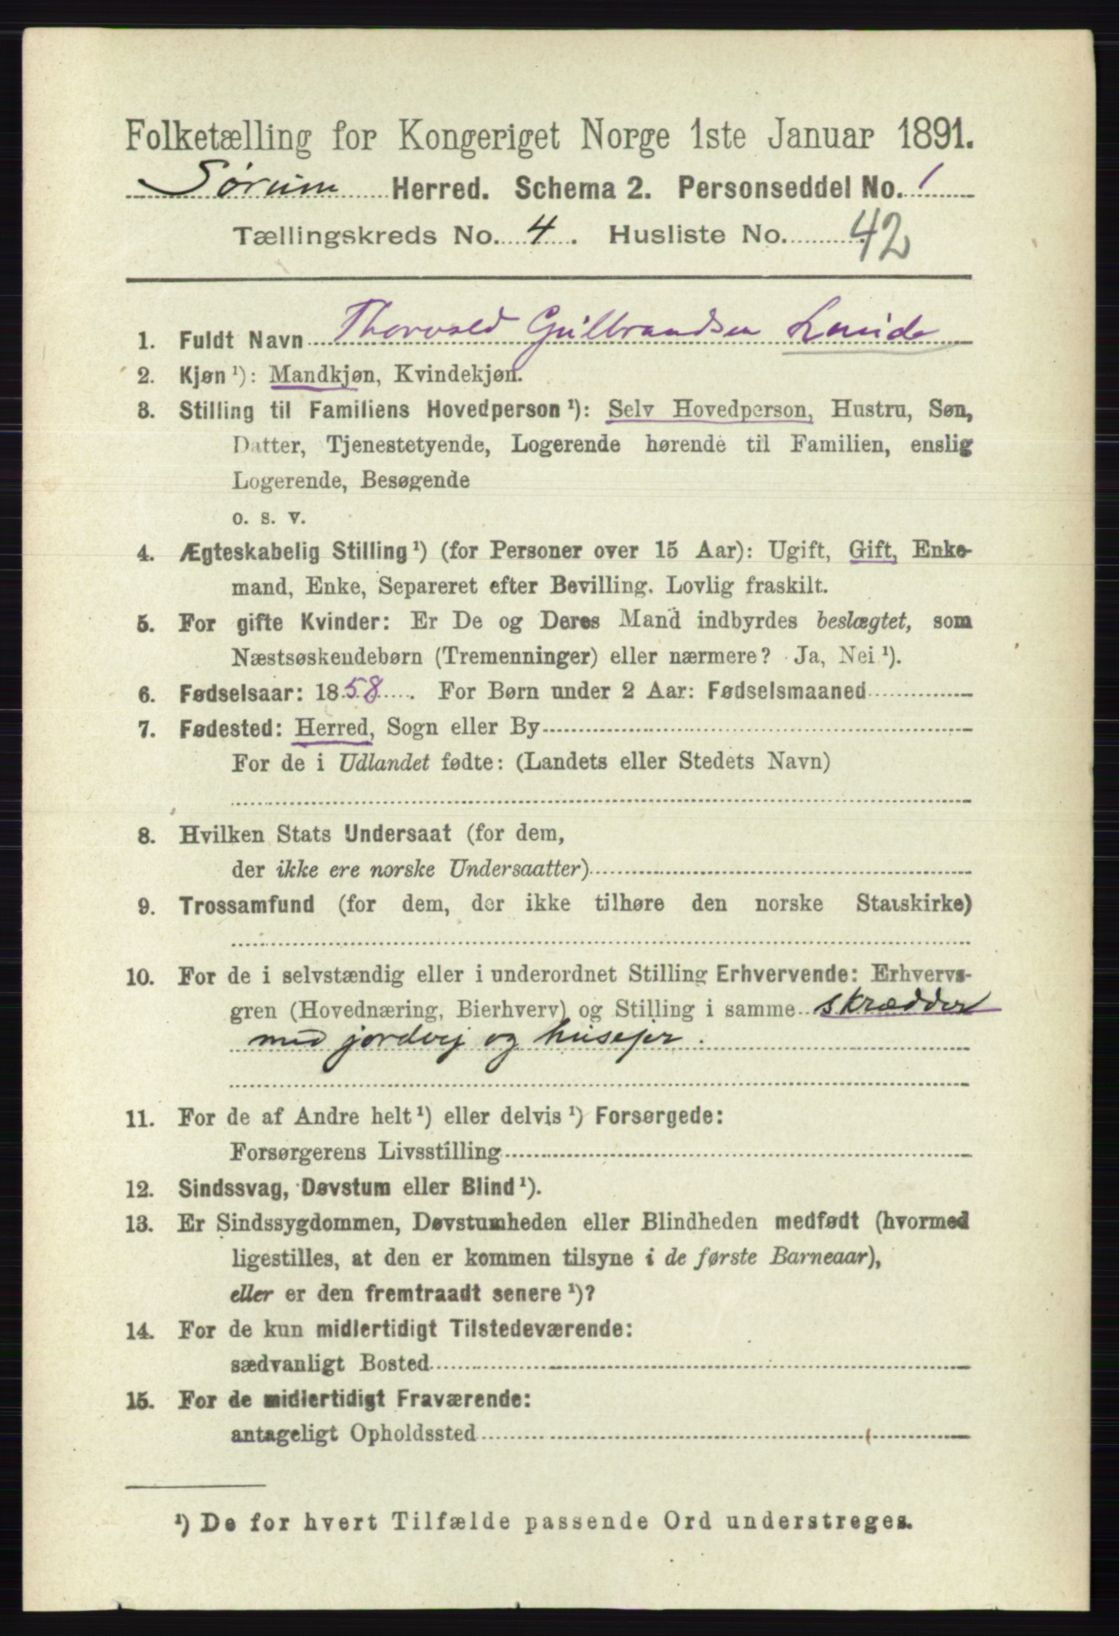 Folketælling for Kongeriget Norge 1ste Januar 1891.
Sørum Herred. Schema 2. Personseddel No. 1
Tællingskreds No. 4. Husliste No. 42
1. Fuldt Navn Thorvald Gulbrandsen Lunde
2. Kjøn¹): Mandkjøn, Kvindekjøn.
3. Stilling til Familiens Hovedperson¹): Selv Hovedperson, Hustru, Søn,
Datter, Tjenestetyende, Logerende hørende til Familien, enslig
Logerende, Besøgende
o. s. v.
4. Ægteskabelig Stilling¹) (for Personer over 15 Aar): Ugift, Gift, Enke-
mand, Enke, Separeret efter Bevilling. Lovlig fraskilt.
5. For gifte Kvinder: Er De og Deres Mand indbyrdes beslægtet, som
Næstsøskendebørn (Tremenninger) eller nærmere? Ja, Nei¹).
6. Fødselsaar: 1858. For Børn under 2 Aar: Fødselsmaaned
7. Fødested: Herred, Sogn eller By
For de i Udlandet fødte: (Landets eller Stedets Navn)
8. Hvilken Stats Undersaat (for dem,
der ikke ere norske Undersaatter)
9. Trossamfund (for dem, der ikke tilhøre den norske Statskirke)
10. For de i selvstændig eller i underordnet Stilling Erhvervende: Erhvervs-
gren (Hovednæring, Bierhverv) og Stilling i samme skrædder
med jordvej og husejer.
11. For de af Andre helt¹) eller delvis¹) Forsørgede:
Forsørgerens Livsstilling
12. Sindssvag, Døvstum eller Blind¹).
13. Er Sindssygdommen, Døvstumheden eller Blindheden medfødt (hvormed
ligestilles, at den er kommen tilsyne i de første Barneaar),
eller er den fremtraadt senere¹)?
14. For de kun midlertidigt Tilstedeværende:
sædvanligt Bosted
15. For de midlertidigt Fraværende:
antageligt Opholdssted
¹) De for hvert Tilfælde passende Ord understreges.